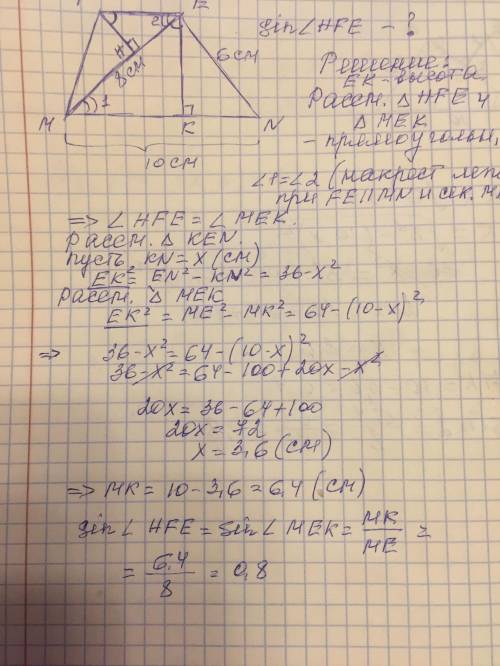 E
2
sin∠HFE - ?
H
8 см
6 см
Решение:
EK - высота.
Рассм. △ HFE и
△ MEK
- прямоугольн,
1
M K N
10 см
∠1=∠2 (накрест леж
при FE||MN и сек. M
=> ∠ HFE = ∠ MEK.
Рассм. △ KEN.
Пусть KN = x (см)
EK² = EN² - KN² = 36-x²
Рассм. △ MEK
EK² = ME² - MK² = 64-(10-x)²
=> 36-x² = 64-(10-x)²
36-x² = 64-100+20x-x²
20x = 36-64+100
20x = 72
x = 3,6 (см)
=> MK = 10-3,6 = 6,4 (см)
sin∠ HFE = sin∠ MEK = MK/ME =
= 6,4/8 = 0,8